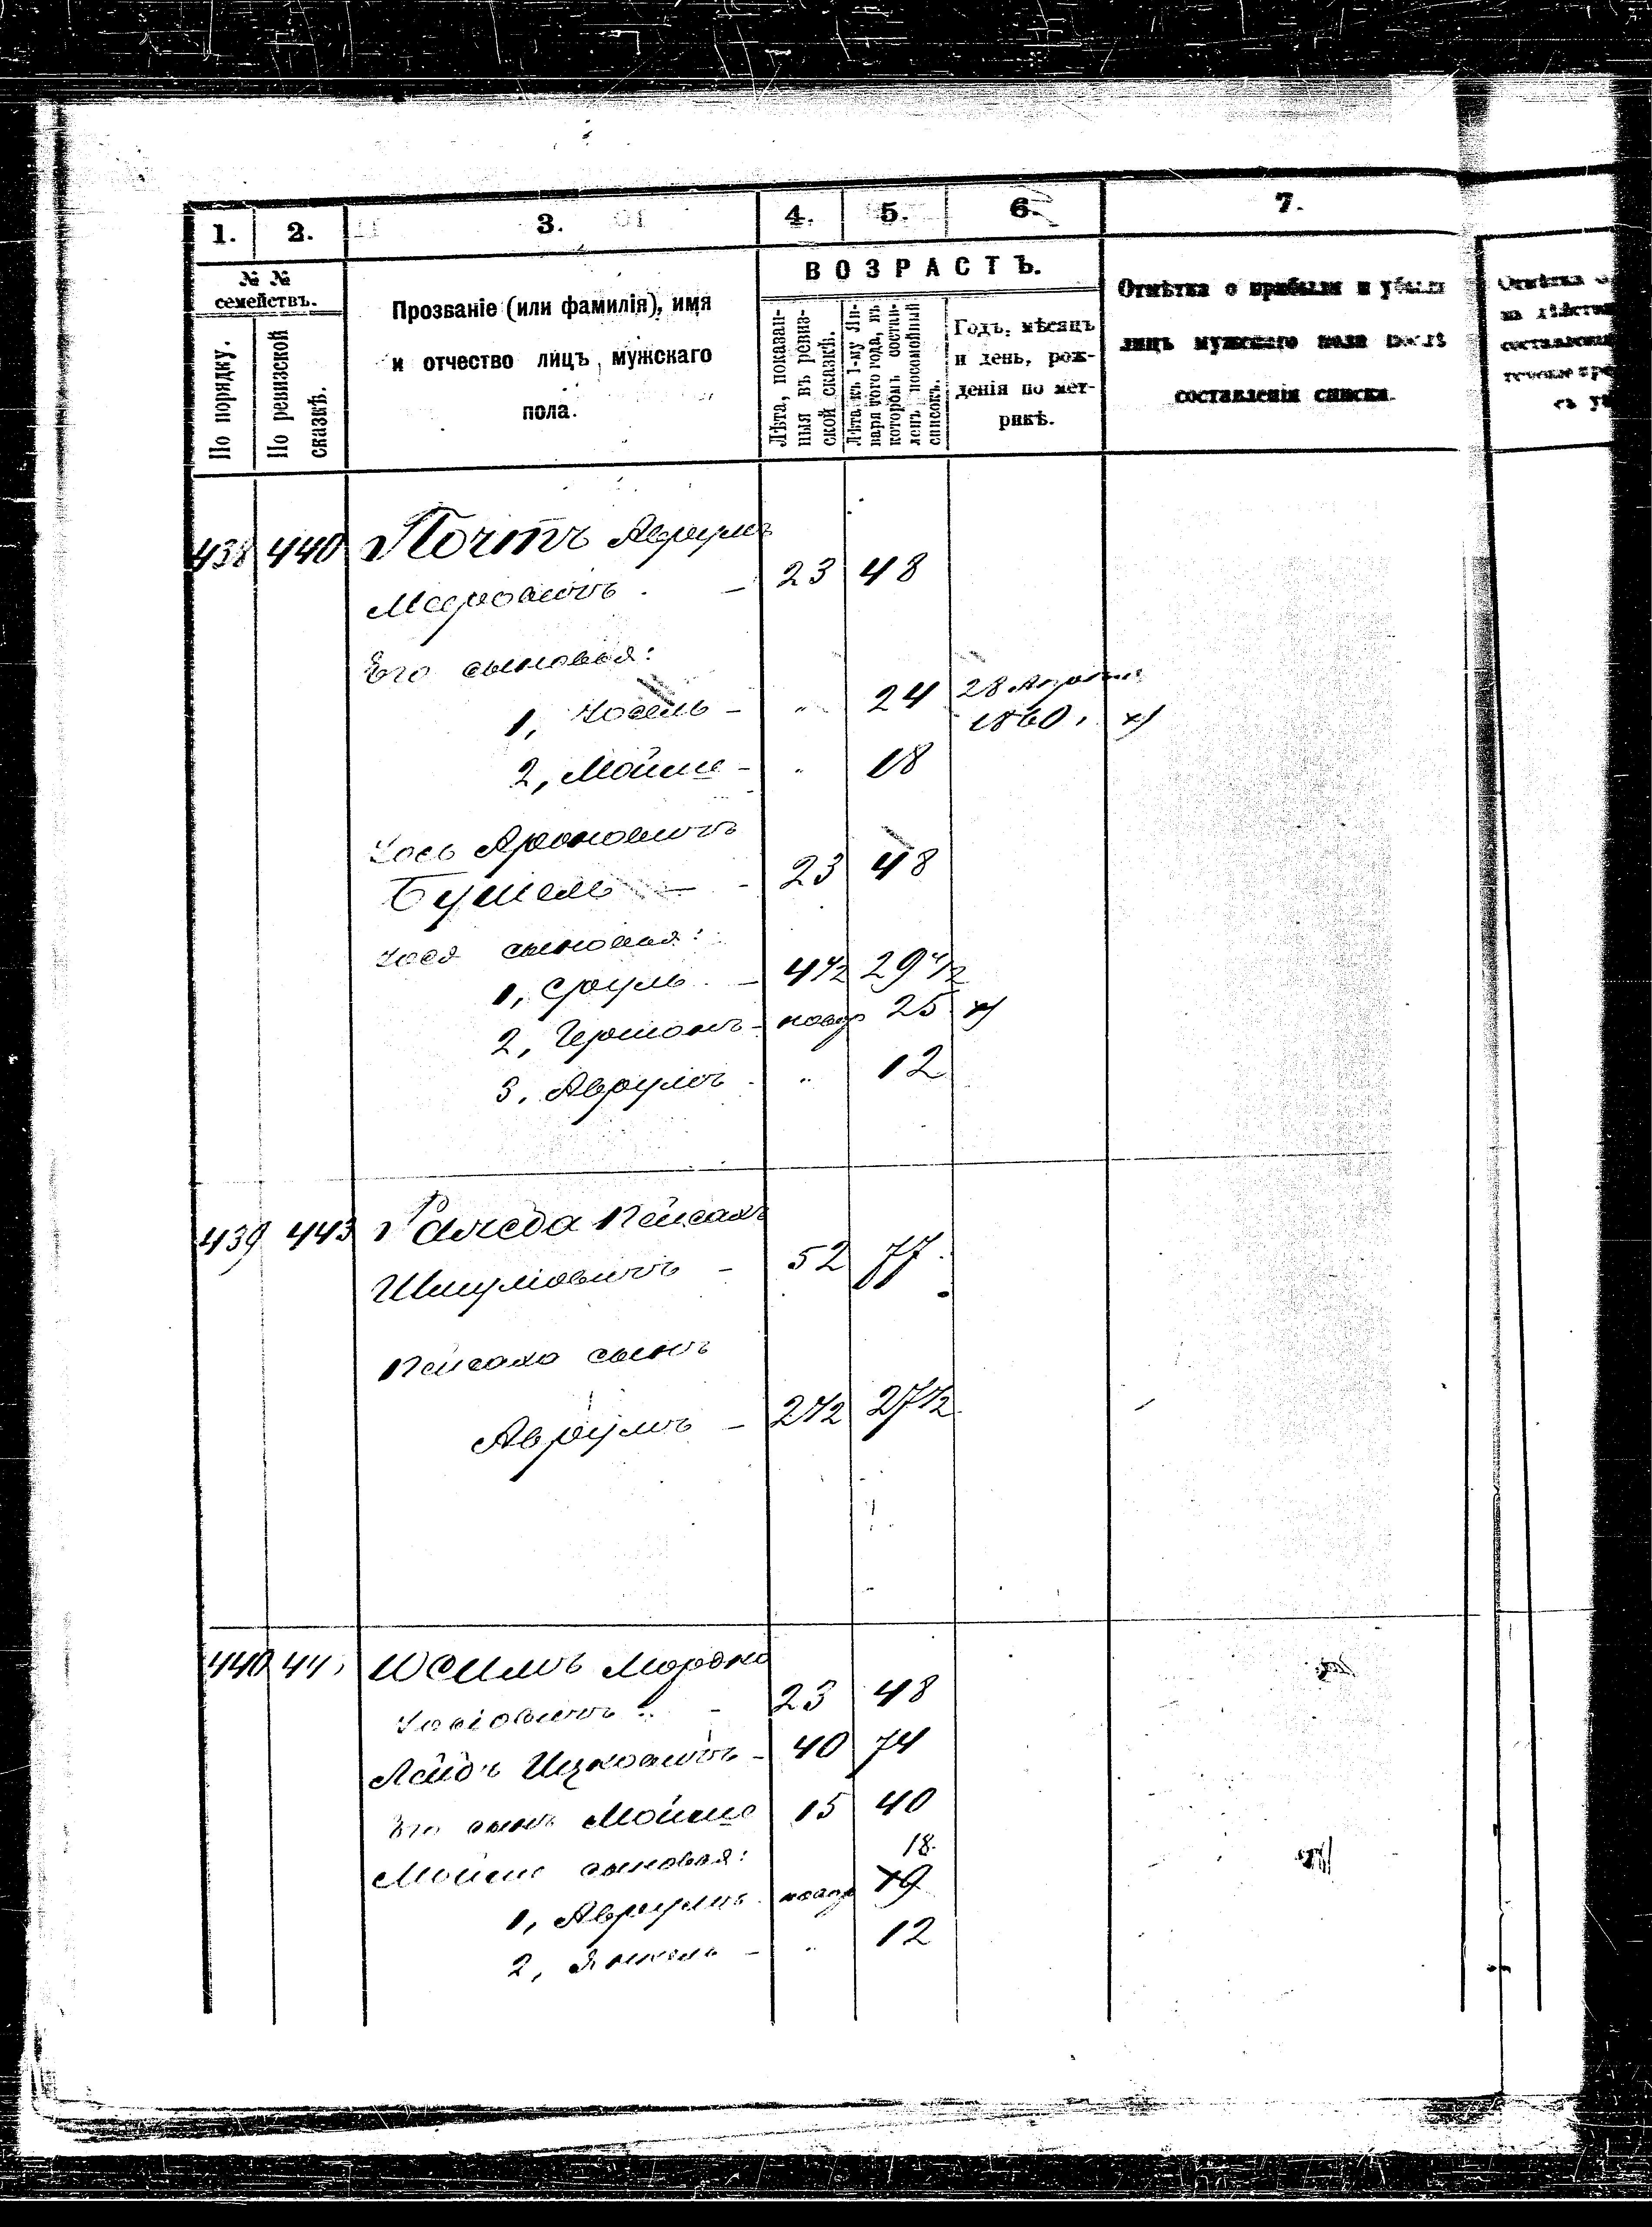 1. 2. 3. 4. 5. 6. 7.
№ № семействъ.
По порядку.
По ревизской сказкѣ.
Прозваніе (или фамилія), имя
и отчество лицъ мужскаго
пола.
ВОЗРАСТЪ.
Лѣта, показан-
ныя въ ревиз-
ской сказкѣ.
Лѣта къ 1-му Ян-
варя того года, въ
которомъ состав-
ленъ посемейный
списокъ.
Годъ, мѣсяцъ
и день, рож-
денія по мет-
рикѣ.
Отмѣтка о прибыли и убыли
лицъ мужскаго пола послѣ
составленія списка.
438 440 Почтъ Аврумъ
23 48
Его сыновья:
1, Іосель - " 24 28 Апрѣля
1860, х)
2, Мойше - " 18
Іось Ароновичъ
Бушель - 23 48
Іося сыновья:
1, Сруль - 4 1/2 29 1/2
2, Гершонъ - новор 25 х)
3, Аврумъ - " 12
439 443 Пейсахъ
Шмулiовичъ - 52 77
Пейсаха сынъ
Аврумъ - 2 1/2 27 1/2
440 44 Мордко
Іосіовичъ - 23 48
Лейбъ Ицковичъ - 40 74
Его сынъ Мойше 15 40
Мойше сыновья: 18
1, Аврумъ новор 19
2, Янкель - " 12